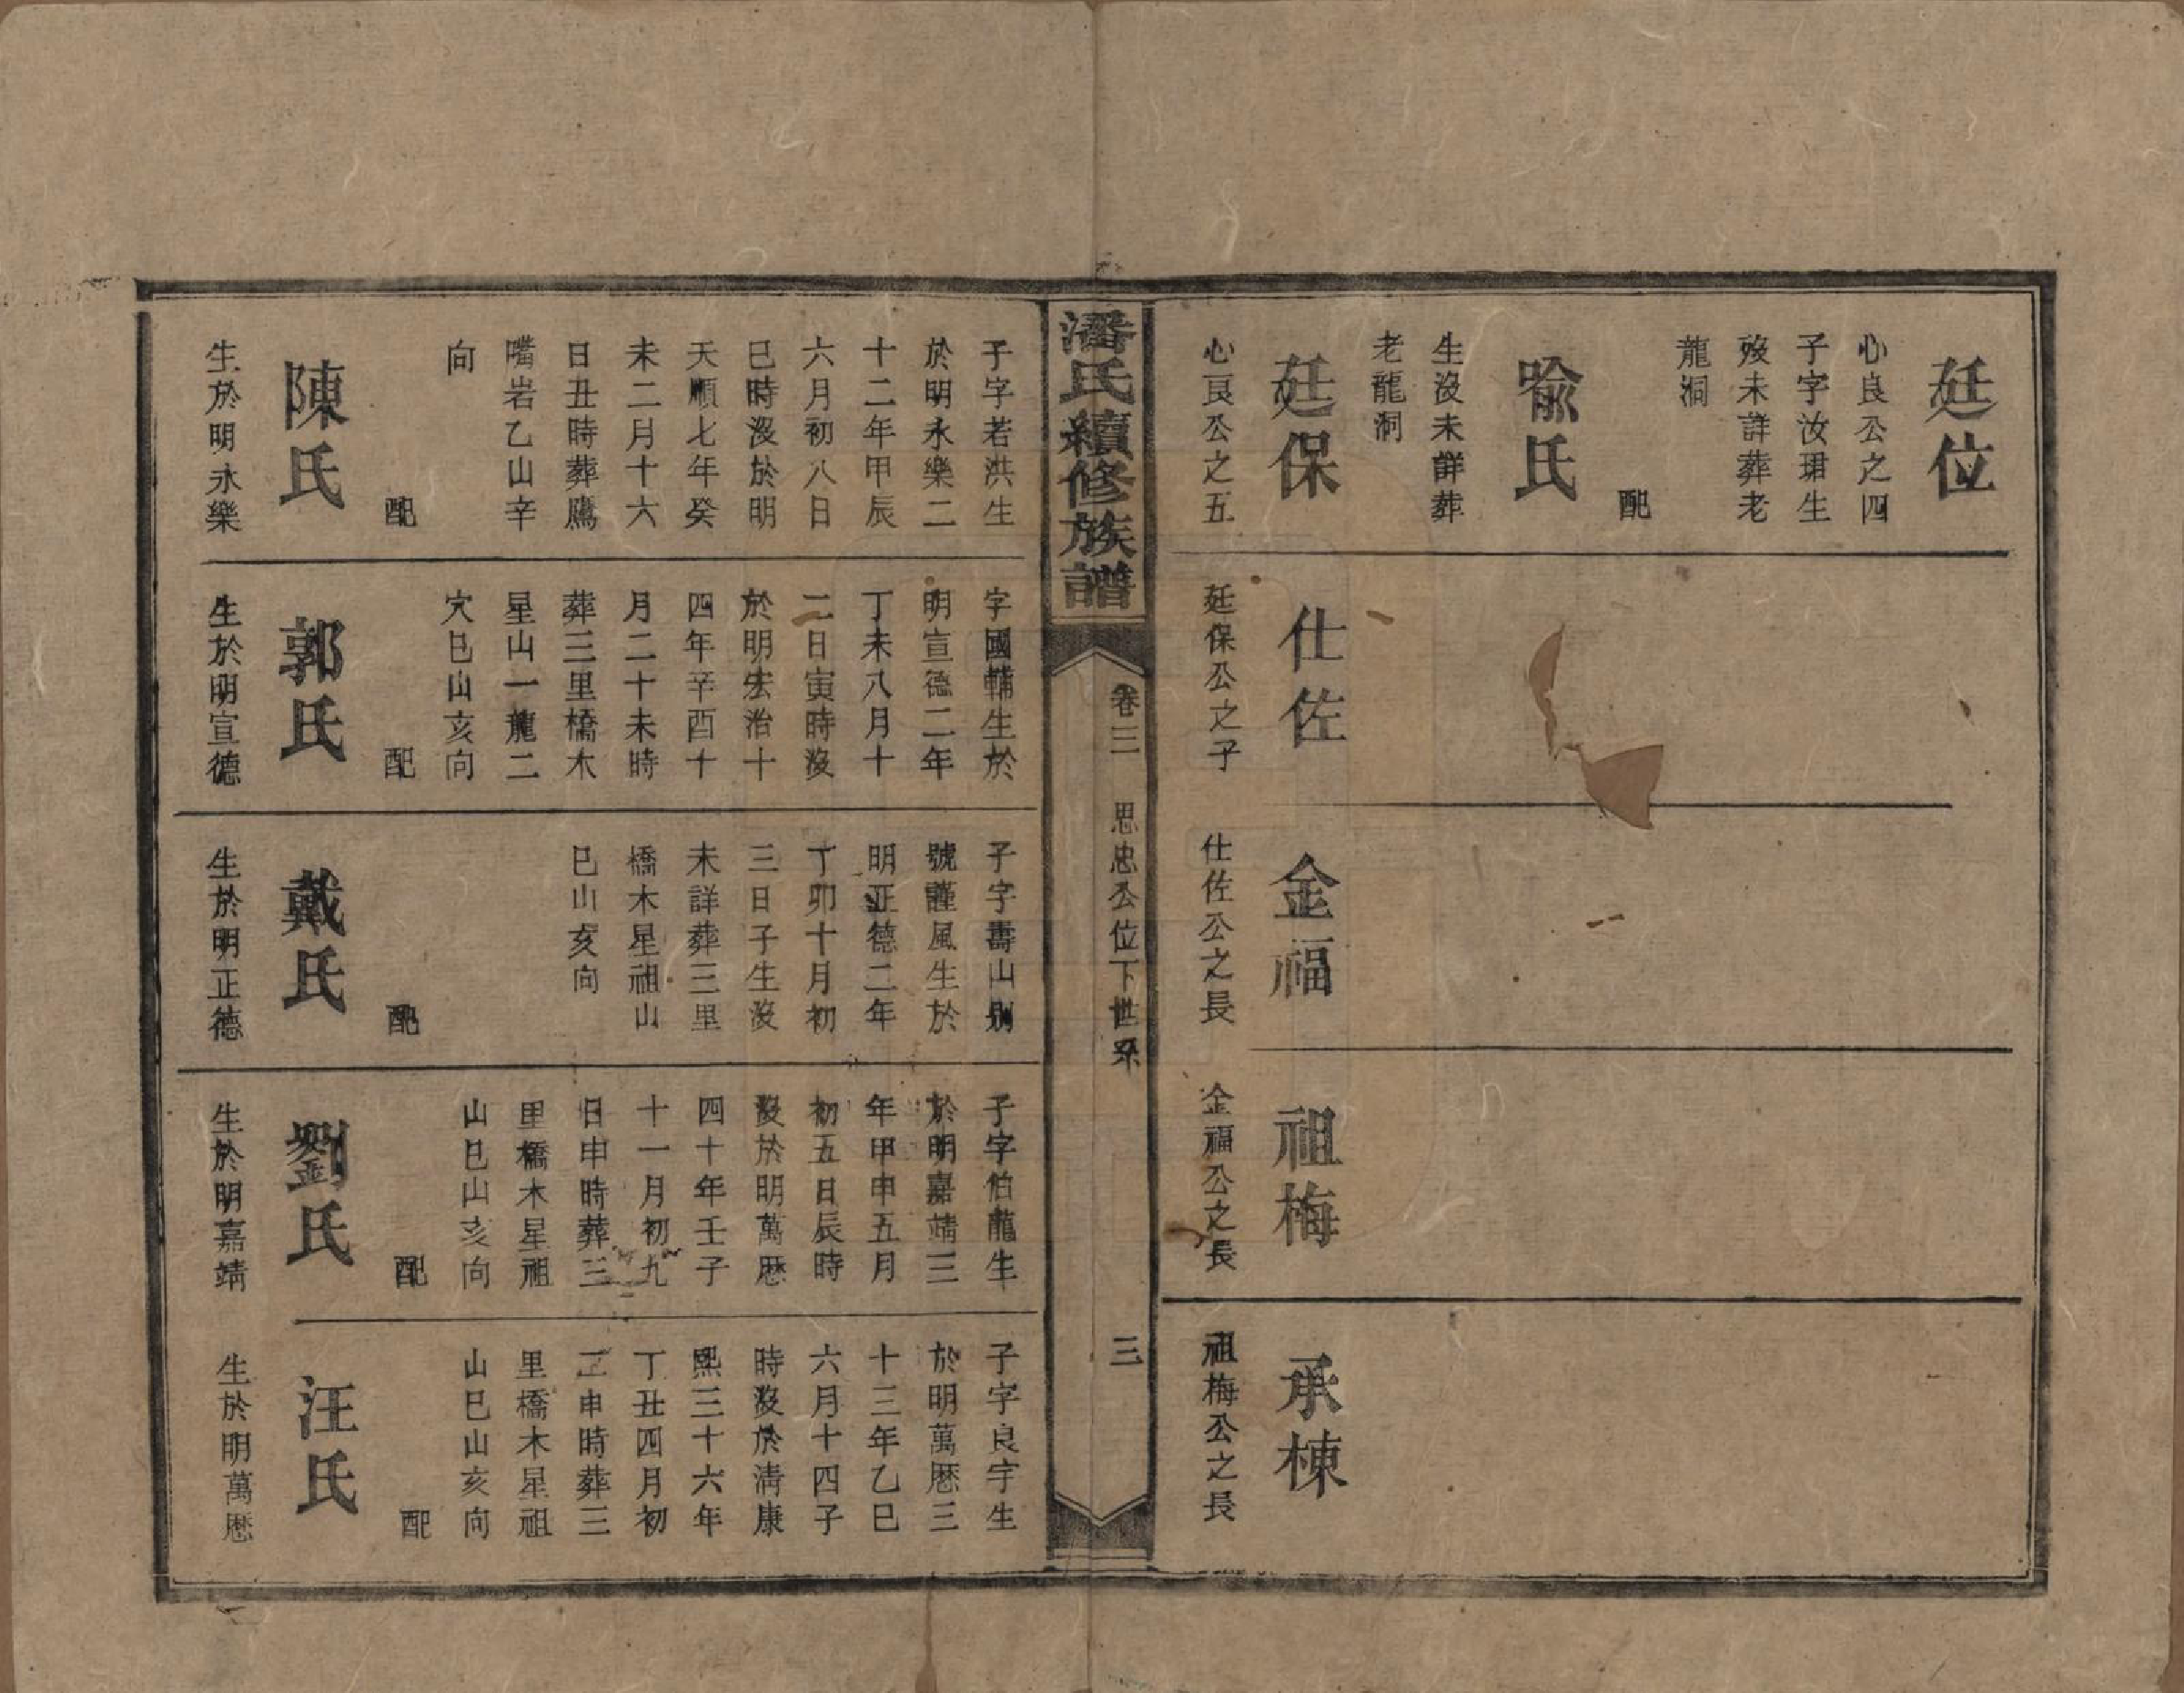 廷位
心良公之四
子字汝珺生
歿未詳葬老
龍洞
配
喩氏
生沒未詳葬
老龍洞
廷保
心良公之五
仕佐
廷保公之子
金福
仕佐公之長
祖梅
金福公之長
承棟
祖梅公之長
潘氏續修族譜
卷三
思忠公位下世系
三
子字若洪生
於明永樂二
十二年甲辰
六月初八日
巳時沒於明
天順七年癸
未二月十六
日丑時葬鷹
嘴岩乙山辛
向
配
陳氏
生於明永樂
字國輔生於
明宣德二年
丁未八月十
二日寅時沒
於明宏治十
四年辛酉十
月二十未時
葬三里橋木
星山一龍二
穴巳山亥向
配
郭氏
生於明宣德
子字壽山别
號謹風生於
明正德二年
丁卯十月初
三日子生沒
未詳葬三里
橋木星祖山
巳山亥向
配
戴氏
生於明正德
子字伯龍生
於明嘉靖三
年甲申五月
初五日辰時
沒於明萬厯
四十年壬子
十一月初九
日申時葬三
里橋木星祖
山巳山亥向
配
劉氏
生於明嘉靖
子字良宇生
於明萬厯三
十三年乙巳
六月十四子
時沒於清康
熙三十六年
丁丑四月初
二申時葬三
里橋木星祖
山巳山亥向
配
汪氏
生於明萬厯